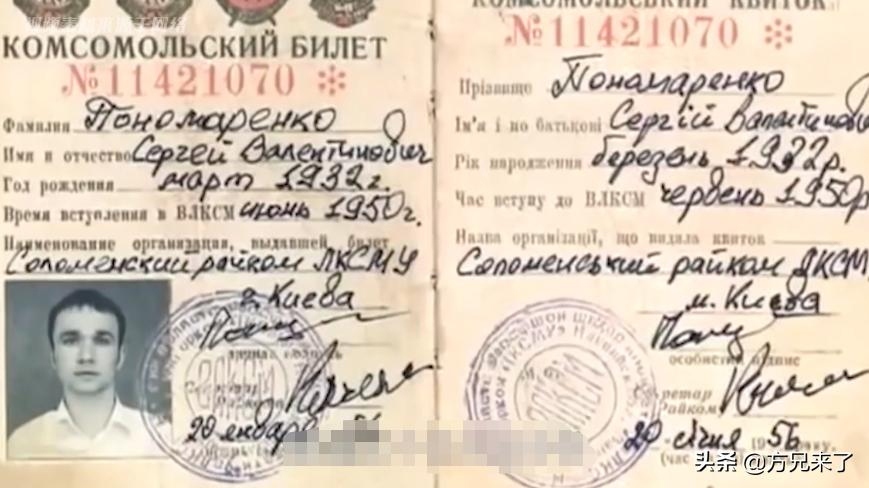 视频素材来源于网络
КОМСОМОЛЬСКИЙ БИЛЕТ
№ 11421070
Фамилия Пономаренко
Имя и отчество Сергей Валентинович
Год рождения март 1932 г.
Время вступления в ВЛКСМ июнь 1950 г.
Наименование организации, выдавшей билет
Соломенский райком ЛКСМУ
г. Киева
20 января
КОМСОМОЛЬСЬКИЙ КВИТОК
№ 11421070
Прізвище Пономаренко
Ім'я і по батькові Сергій Валентинович
Рік народження березень 1932 р.
Час вступу до ВЛКСМ червень 1950 р
Назва організації, що видала квиток
Соломенський райком ЛКСМ
м. Києва
особистий підпис
Секретар
Райкому
20 січня 1956 року
头条 @方兄来了